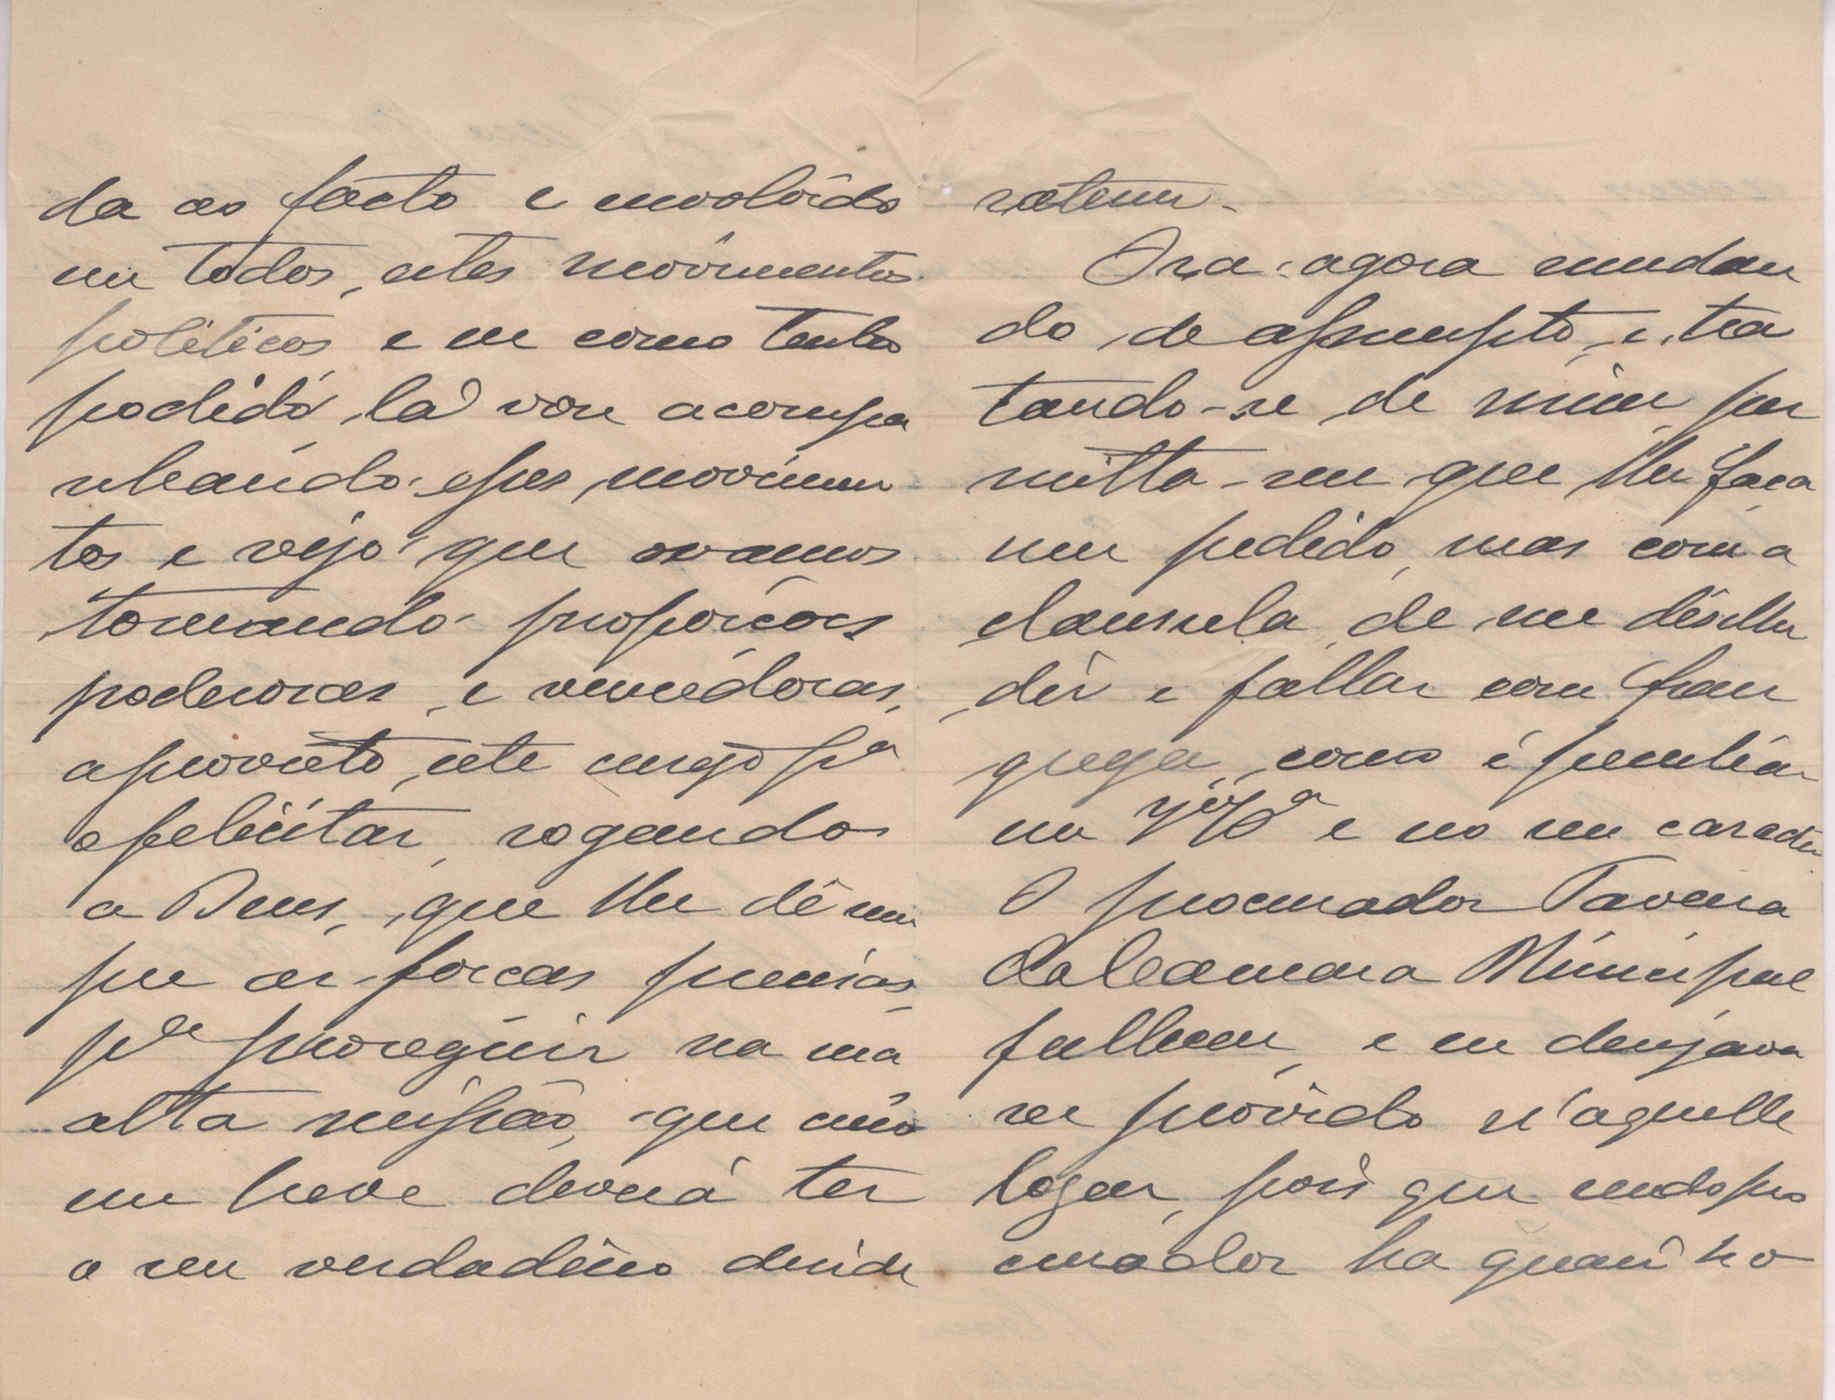 da ao facto e envolvido
em todos, estes movimentos
politicos, e eu como tenho
podido, la vou acompa
nhando esses movimen
tos e vejo que vamos
tomando proporções
poderosas, e vencedoras,
aproveito, este ensejo pª
o felicitar, rogando
a Deus, que lhe dê sem
pre as forças precisas
pª proseguir na sua
alta missão, que não
em breve deverá ter
o seu verdadeiro deside
ratum.
Ora agora mudan
do de assumpto, e, tra
tando-se de mim, per
mitta-me que lhe faça
um pedido, mas com a
clausula, de me descul
dir e fallar com fran
queza, como é peculiar
em V. Ex.ª e no seu caracter
O procurador Taveira
da Camara Municipal
falleceu, e eu desejava
ser provido n'aquelle
logar, pois que sendo pro
curador ha quasi no